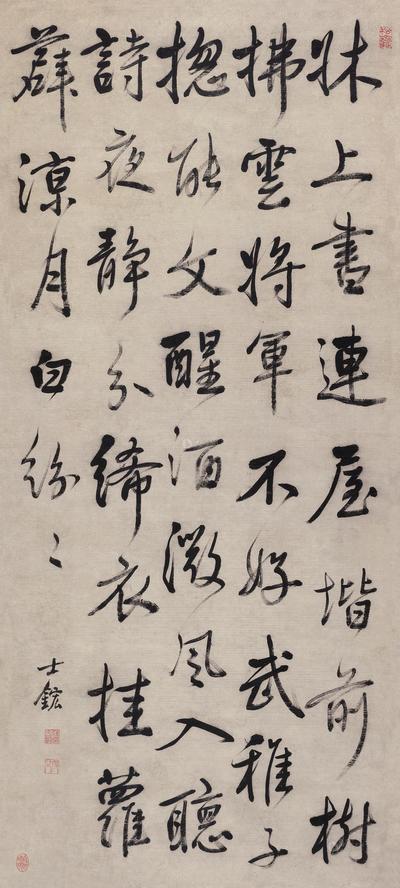 牀上書連屋堦前樹
拂雲將軍不好武稚子
揔能文醒酒微風入聽
詩夜静分絺衣挂蘿
薜涼月白紛〻
士鋐